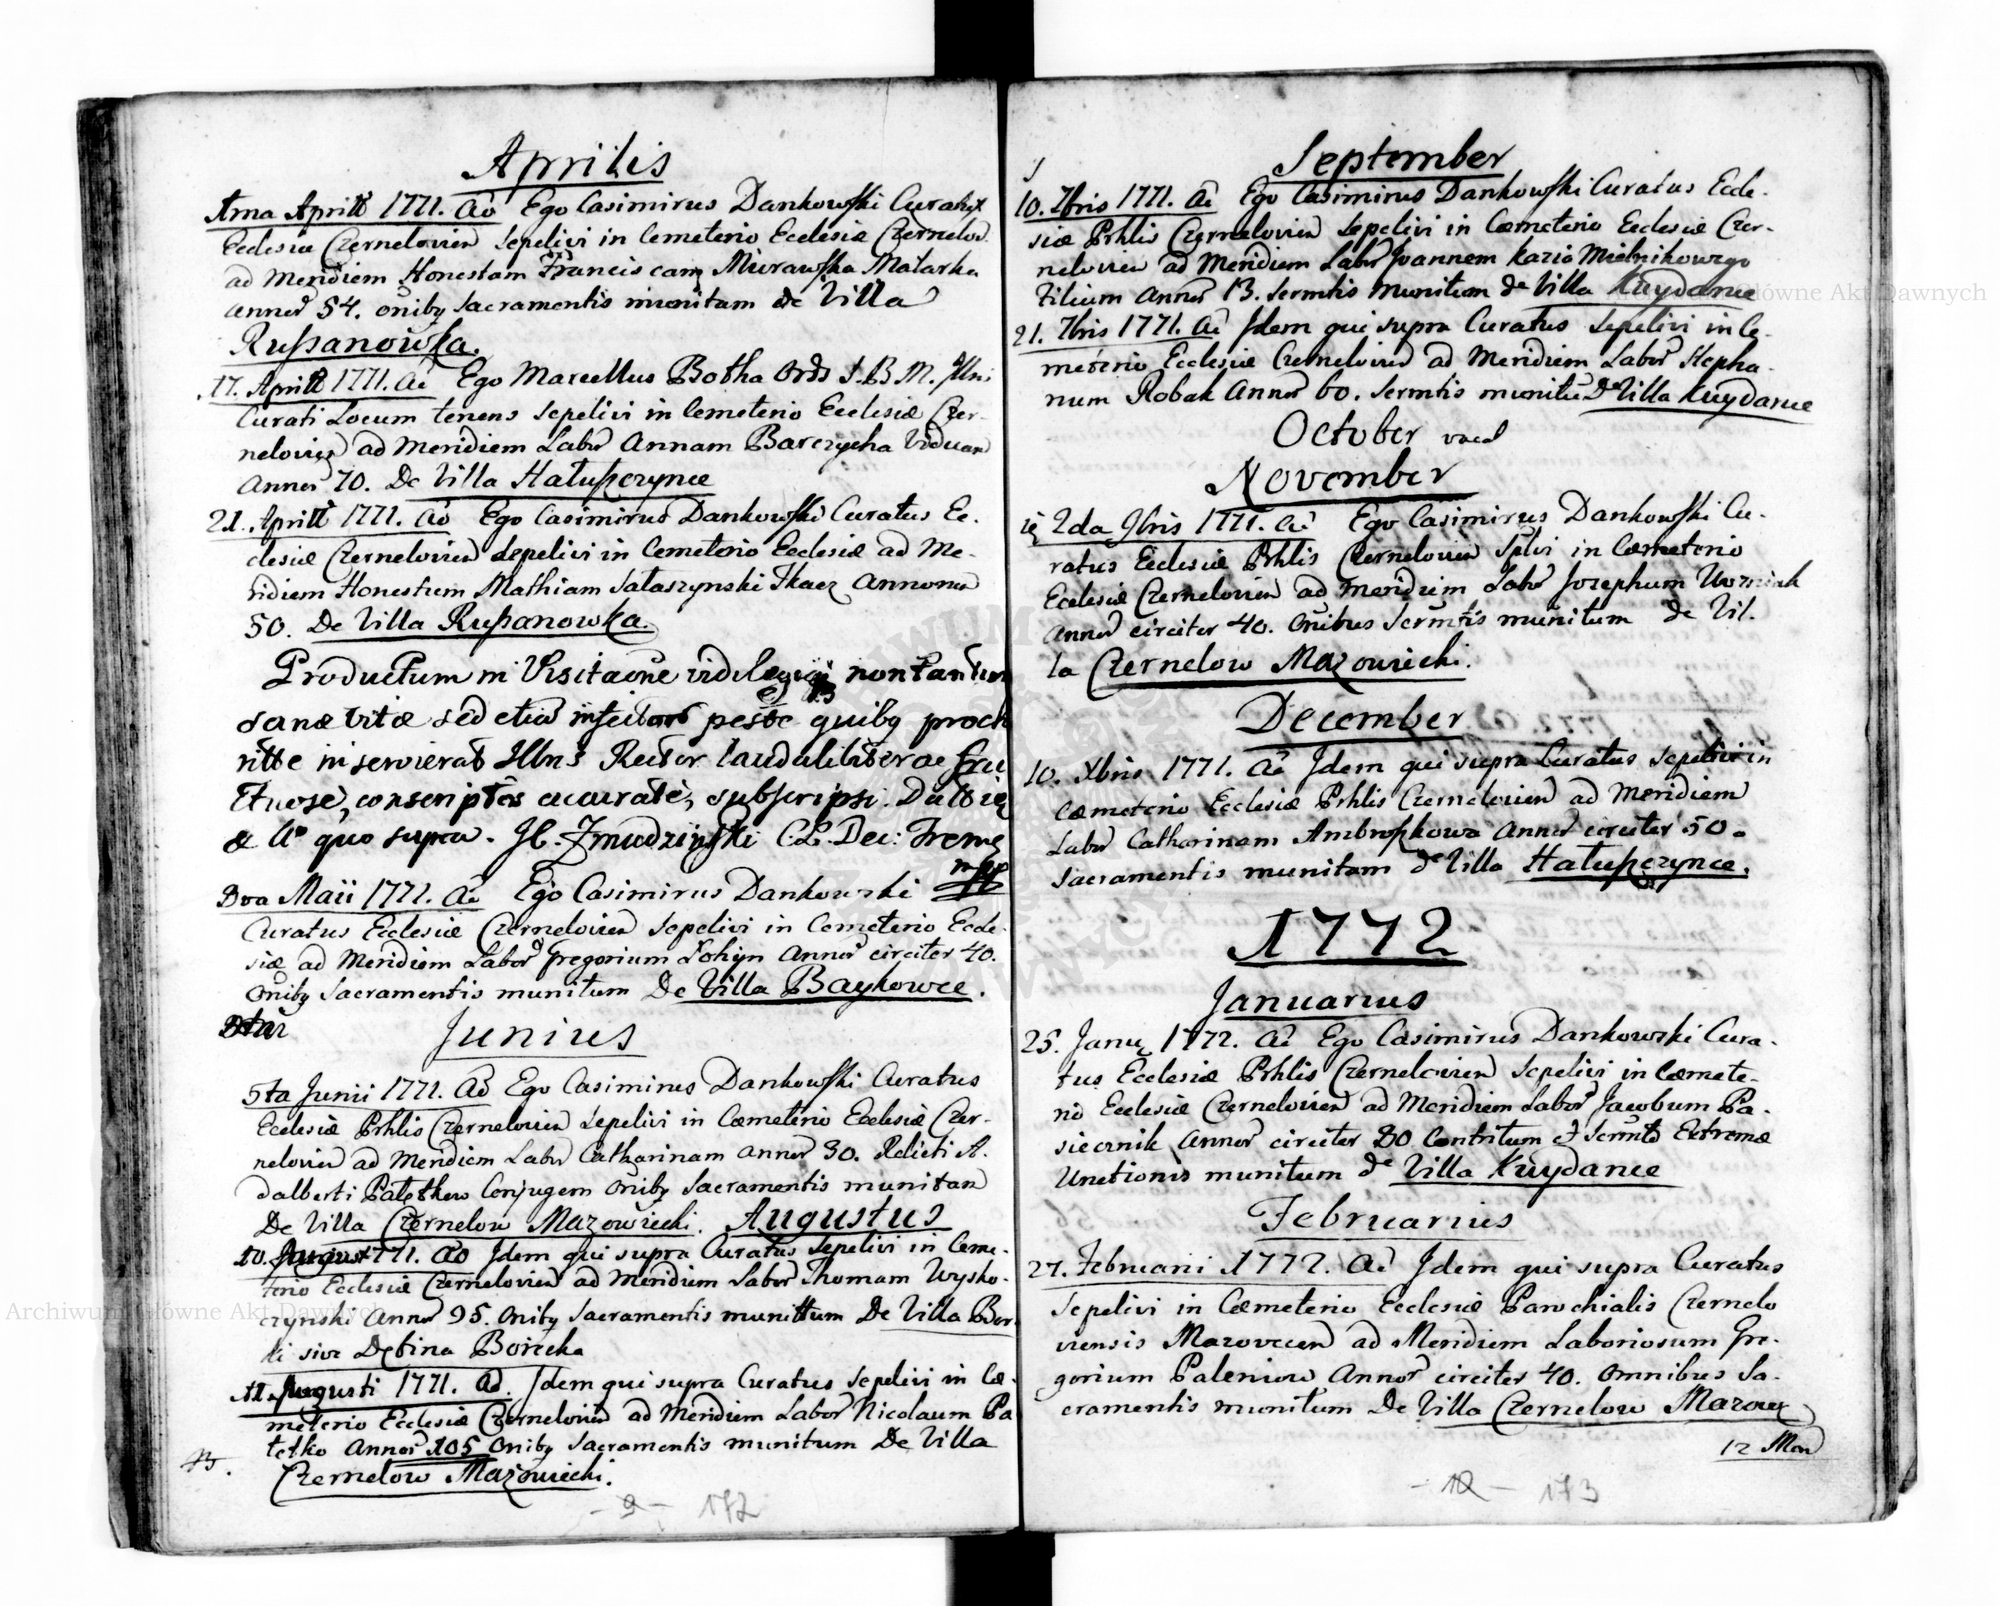 Aprilis
1ma Aprill 1771. Aō Ego Casimirus Dankowski Curatus
Ecclesiæ Czernelovien Sepelivi in Cemeterio Ecclesiæ Czernelov
ad Meridiem Honestam Franciscam Murawska Malarka
annor 54. oniby Sacramentis munitam de Villa
Russanowka.
17. Aprill 1771. Aō Ego Marcellus Botha Ords S. B. M. Illris
Curati Locum tenens Sepelivi in Cemeterio Ecclesiæ Czer-
nelovien ad Meridiem Labor Annam Barczycha Viduam
Annor 70. De Villa Hatuszczynce
21. Aprill 1771. Aō Ego Casimirus Dankowski Curatus Ec-
clesiæ Czernelovien Sepelivi in Cemeterio Ecclesiæ ad Me-
ridiem Honestum Mathiam Sataszynski Tkacz Annorum
50. De Villa Russanowka.
Productum in Visitaōne vidi legi non tantum
sanæ vitæ sed etiā infectorū peste quiby
ritte inservierat Illris Rector laudabiliter ac fru
ctuose, conscriptos accurate, subscripsi. Datt
& Aō quo supra. Zmudzinski C. L. Dec: Trem
mp
2da Maii 1771. Aō Ego Casimirus Dankowski
Curatus Ecclesiæ Czernelovien Sepelivi in Cemeterio Eccle-
siæ ad Meridiem Labor Gregorium Lohyn Annor circiter 40.
Oniby Sacramentis munitum De Villa Baykowce.
Junius
5ta Junii 1771. Aō Ego Casimirus Dankowski Curatus
Ecclesiæ Prhlis Czernelovien Sepelivi in Cæmeterio Ecclesiæ Czer-
nelovien ad Meridiem Labor Catharinam annor 30. Relicti A-
dalberti Conjugem Oniby Sacramentis munitam
De Villa Czernelow Mazowiecki. Augustus
10. August 1771. Aō Idem qui supra Curatus Sepelivi in Ceme-
terio Ecclesiæ Czernelovien ad Meridiem Labor Thomam Wysko-
czynski Annor 95. Oniby Sacramentis munittum De Villa Bor-
ki sive Dębina Borecka
11. Augusti 1771. Aō. Idem qui supra Curatus Sepelivi in Cæ-
meterio Ecclesiæ Czernelovien ad Meridiem Labor Nicolaum Pa
letko Annor 105 Oniby Sacramentis munitum De Villa
Czernelow Mazowiecki.
- 9 - 172
September
10. 7bris 1771. Aō Ego Casimirus Dankowski Curatus Eccle-
siæ Prhlis Czernelovien Sepelivi in Cæmeterio Ecclesiæ Czer-
nelovien ad Meridiem Labor Joannem Kazia Mielnikowego
Filium Annor 13. Sermtis munitum de Villa Kuydance
21. 7bris 1771. Aō Idem qui supra Curatus Sepelivi in Ce-
meterio Ecclesiæ Czernelovien ad Meridiem Labor Stepha-
num Robak Annor 60. Sermtis munitū De Villa Kuydance
October vacat
November
2da 9bris 1771. Aō Ego Casimirus Dankowski Cu-
ratus Ecclesiæ Prhlis Czernelovien Splvi in Cæmeterio
Ecclesiæ Czernelovien ad Meridiem Labor Josephum Wozniak
Annor circiter 40. Onibus Sermtis munitum de Vil-
la Czernelow Mazowiecki.
December
10. Xbris 1771. Aō Idem qui supra Curatus Sepelivi in
Cæmeterio Ecclesiæ Prhlis Czernelovien ad Meridiem
Labor Catharinam Ambroszkowa Annor circiter 50.
Sacramentis munitam de Villa Hatuszczynce.
1772
Januarius
25. Janu 1772. Aō Ego Casimirus Dankowski Cura-
tus Ecclesiæ Prhlis Czernelovien Sepelivi in Cæmete-
rio Ecclesiæ Czernelovien ad Meridiem Labor Jacobum Pa-
siecznik Annor circiter 80 Contritum et Sermto Extremæ
Unctionis munitum de Villa Kuydance
Februarius
27. Februarii 1772. Aō Idem qui supra Curatus
Sepelivi in Cæmeterio Ecclesiæ Parochialis Czernelo
viensis Mazovecen ad Meridiem Laboriosum Gre-
gorium Paleniow Annor circiter 40. omnibus Sa-
cramentis munitum De Villa Czernelow Mazowiec
12 Mar
- 10 - 173
Archiwum Główne Akt Dawnych
Archiwum Główne Akt Dawnych